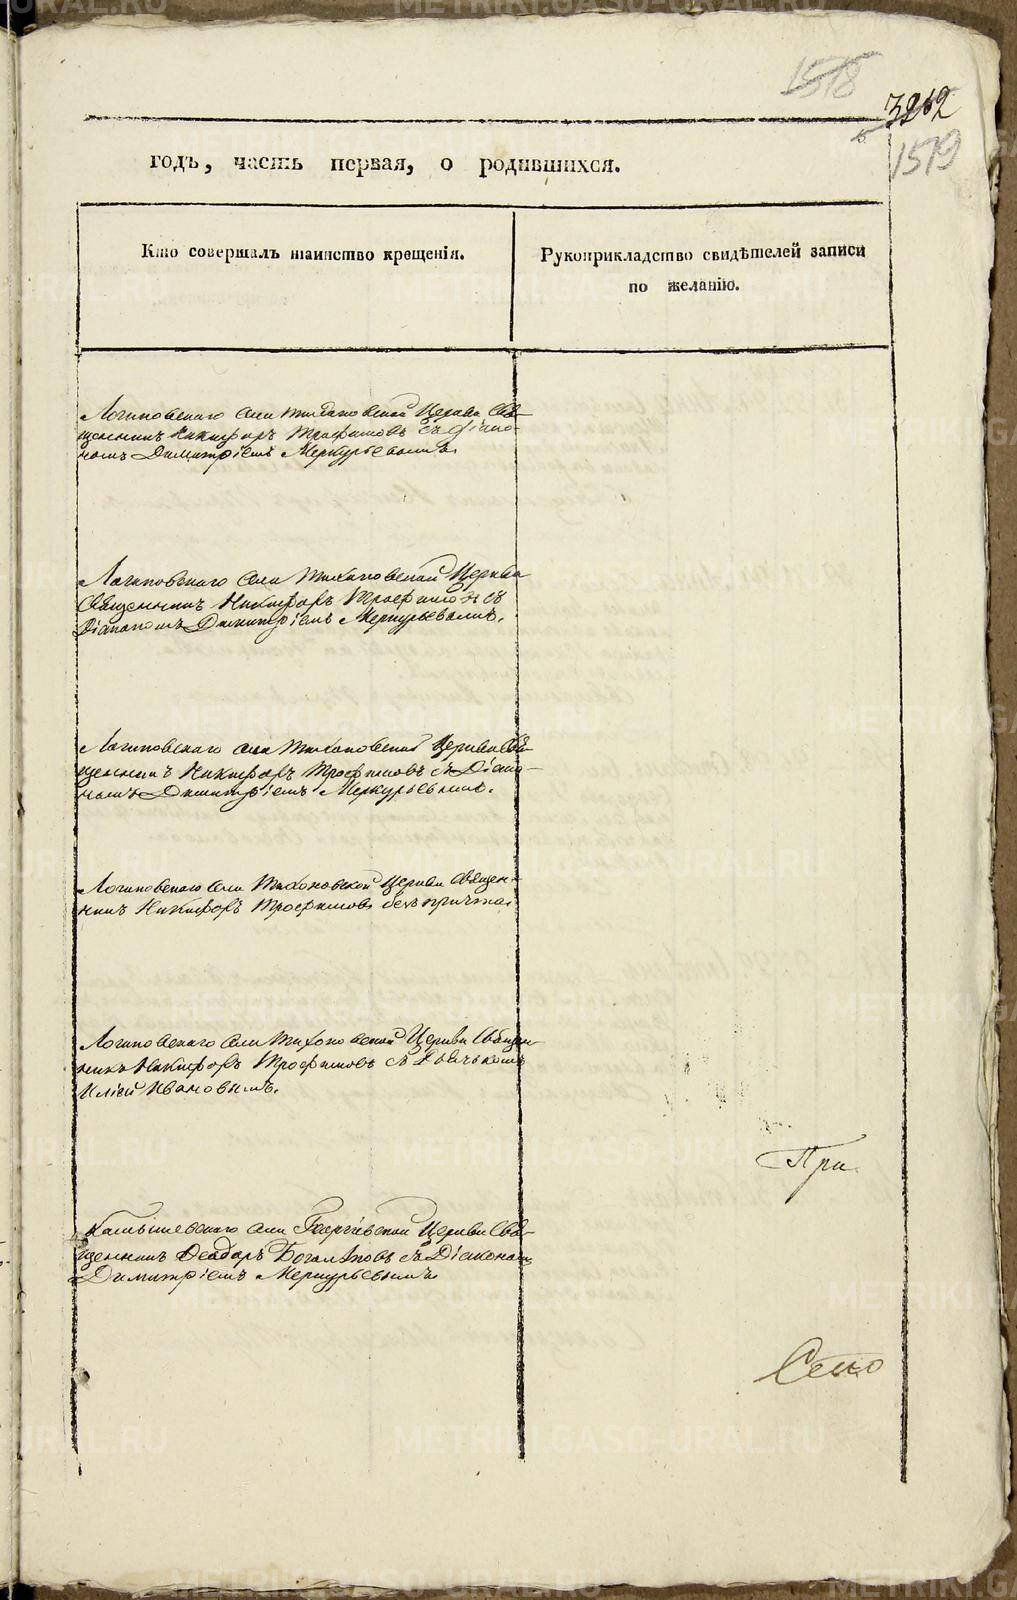 1518
3262
1519
годъ, часть первая, о родившихся.
Кто совершалъ таинство крещенія.
Рукоприкладство свидѣтелей записи
по желанію.
Логиновскаго села Тихоновской Церкви Свя-
щенникъ Никифоръ Трофимовъ съ Діако-
номъ Димитріемъ Меркурьевымъ.
Логиновскаго села Тихоновской Церкви
Священникъ Никифоръ Трофимовъ съ
Діакономъ Димитріемъ Меркурьевымъ.
Логиновскаго села Тихоновской Церкви Свя-
щенникъ Никифоръ Трофимовъ съ Діако-
номъ Димитріемъ Меркурьевымъ.
Логиновскаго села Тихоновской Церкви Священ-
никъ Никифоръ Трофимовъ безъ причта.
Логиновскаго села Тихоновской Церкви Священ-
никъ Никифоръ Трофимовъ съ Дьячькомъ
Иліей Ивановымъ.
При
Камышевскаго села Георгіевской Церкви Свя-
щенникъ Феодоръ Богомоловъ съ Діакономъ
Димитріемъ Меркурьевымъ
Семо
METRIKI.GASO-URAL.RU